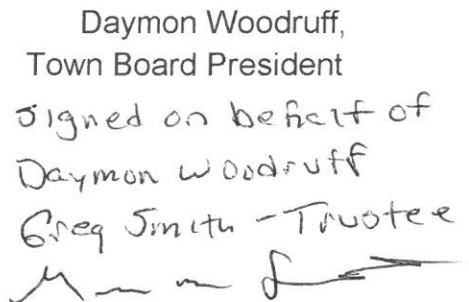 Daymon Woodruff,
Town Board President
Signed on behalf of
Daymon Woodruff
Greg Smith - Trustee